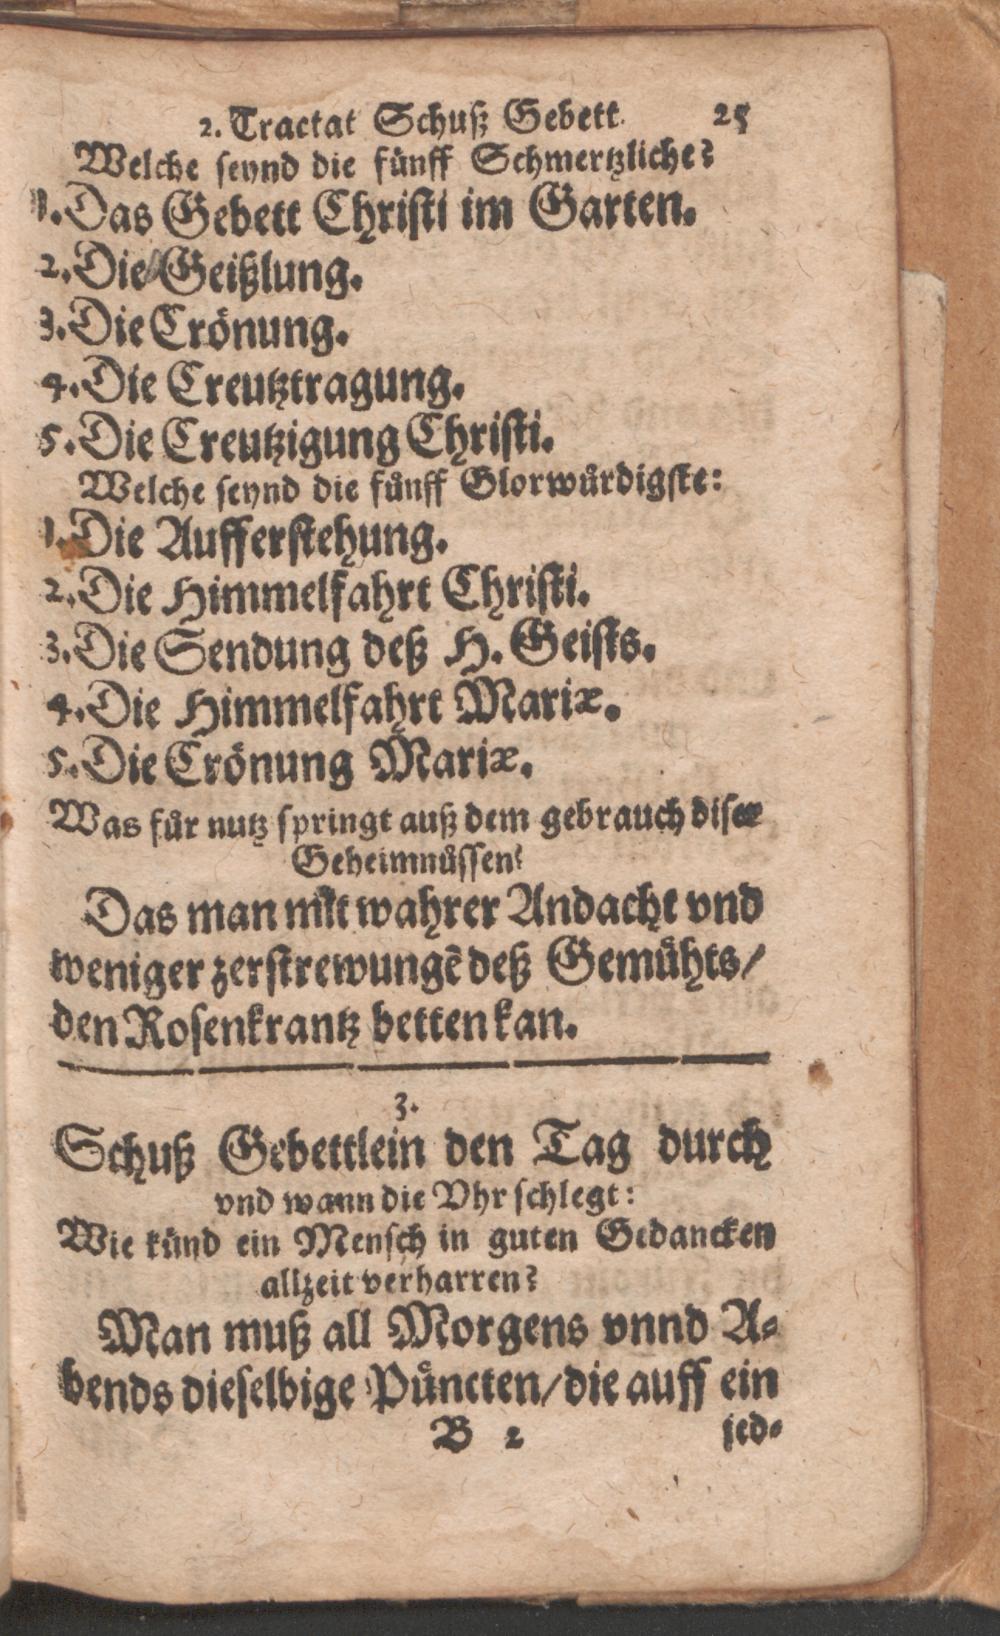 2. Tractat Schuß Gebett. 25
Welche seynd die fünff Schmertzliche?
1. Das Gebett Christi im Garten.
2. Die Geißlung.
3. Die Crönung.
4. Die Creutztragung.
5. Die Creutzigung Christi.
Welche seynd die fuͤnff Glorwuͤrdigste:
1. Die Aufferstehung.
2. Die Himmelfahrt Christi.
3. Die Sendung deß H. Geists.
4. Die Himmelfahrt Mariæ.
5. Die Crönung Mariæ.
Was fuͤr nutz springt auß dem gebrauch diser
Geheimnuͤssen?
Das man mit wahrer Andacht vnd
weniger zerstrewungẽ deß Gemuͤhts/
den Rosenkrantz betten kan.
3.
Schuß Gebettlein den Tag durch
vnd wann die Vhr schlegt:
Wie künd ein Mensch in guten Gedancken
allzeit verharren?
Man muß all Morgens vnnd A-
bends dieselbige Puͤncten/die auff ein
B 2 jed-